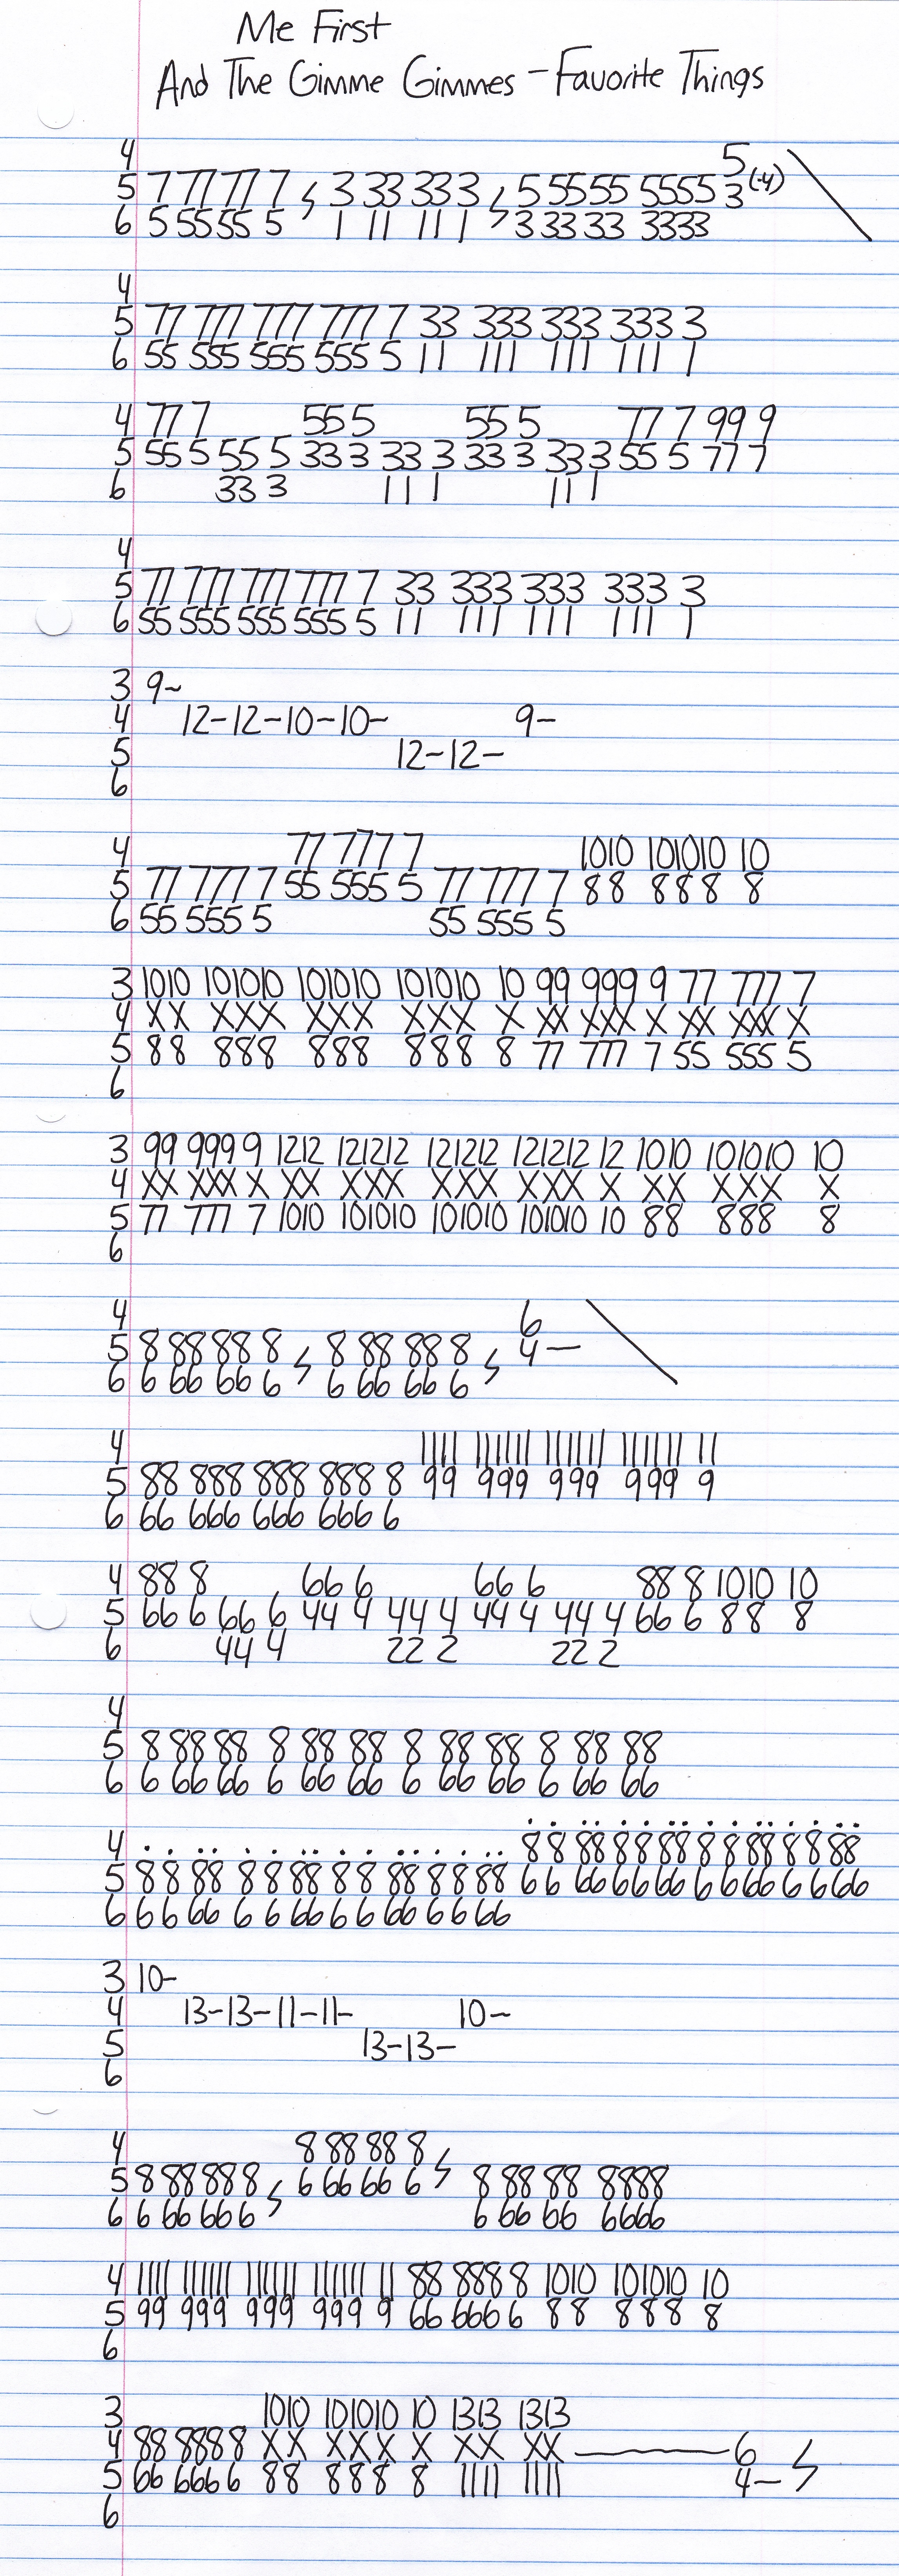 Me First
And The Gimme Gimmes - Favorite Things
4 5
5 7 77 77 7 3 33 33 3 5 55 55 5555 3 (-4)
6 5 55 55 5 1 11 11 1 3 33 33 3333
4
5 77 777 777 777 7 33 333 333 333 3
6 55 555 555 555 5 11 111 111 111 1
4 77 7 55 5 55 5 77 7 99 9
5 55 5 55 5 33 3 33 3 33 3 33 3 55 5 77 7
6 33 3 11 1 11 1
4
5 77 777 777 777 7 33 333 333 333 3
6 55 555 555 555 5 11 111 111 111 1
3 9~
4 12-12-10-10- 9-
5 12-12-
6
4 77 777 7 1010 101010 10
5 77 777 7 55 555 5 77 777 7 88 888 8
6 55 555 5 55 555 5
3 1010 101010 101010 101010 10 99 999 9 77 777 7
4 XX XXX XXX XXX X XX XXX X XX XXX X
5 88 888 888 888 8 77 777 7 55 555 5
6
3 99 999 9 1212 121212 121212 121212 12 1010 101010 10
4 XX XXX X XX XXX XXX XXX X XX XXX X
5 77 777 7 1010 101010 101010 101010 10 88 888 8
6
4 6
5 8 88 88 8 8 88 88 8 4-
6 6 66 66 6 6 66 66 6
4 1111 111111 111111 111111 11
5 88 888 888 888 8 99 999 999 999 9
6 66 666 666 666 6
4 88 8 66 6 66 6 88 8 1010 10
5 66 6 66 6 44 4 44 4 44 4 44 4 66 6 88 8
6 44 4 22 2 22 2
4
5 8 88 88 8 88 88 8 88 88 8 88 88
6 6 66 66 6 66 66 6 66 66 6 66 66
4 8 8 88 8 8 88 8 8 88 8 8 88
5 8 8 88 8 8 88 8 8 88 8 8 88 6 6 66 6 6 66 6 6 66 6 6 66
6 6 6 66 6 6 66 6 6 66 6 6 66
3 10-
4 13-13-11-11- 10-
5 13-13-
6
4 8 88 88 8
5 8 88 88 8 6 66 66 6 8 88 88 8888
6 6 66 66 6 6 66 66 6666
4 1111 111111 111111 111111 11 88 888 8 1010 101010 10
5 99 999 999 999 9 66 666 6 88 888 8
6
3 1010 101010 10 1313 1313
4 88 888 8 XX XXX X XX XX 6
5 66 666 6 88 888 8 1111 1111 4-
6